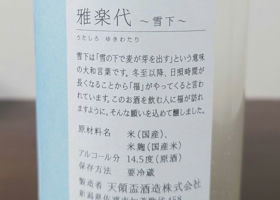 雅楽代
～雪下～
うたしろ ゆきわたり
雪下は「雪の下で麦が芽を出す」という意味
の大和言葉です。冬至以降、日照時間が
長くなることから「福」がやってくると言わ
れています。このお酒を飲む人に福が訪れ
ますように、そんな願いを込めて醸しました。
原材料名 米(国産)、
米麹(国産米)
アルコール分 14.5度(原酒)
保存方法 要冷蔵
製造者 天領盃酒造株式会社
新潟県佐渡市加茂歌代458